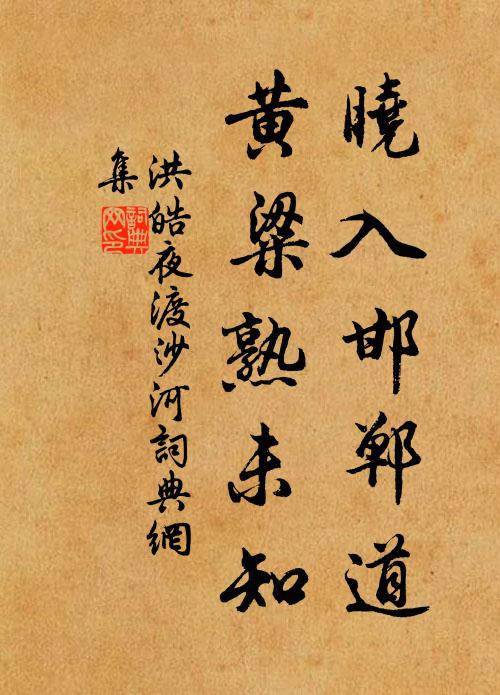 曉入邯鄲道
黃粱熟未知
洪皓夜渡沙河詞典網
集
詞典
网印